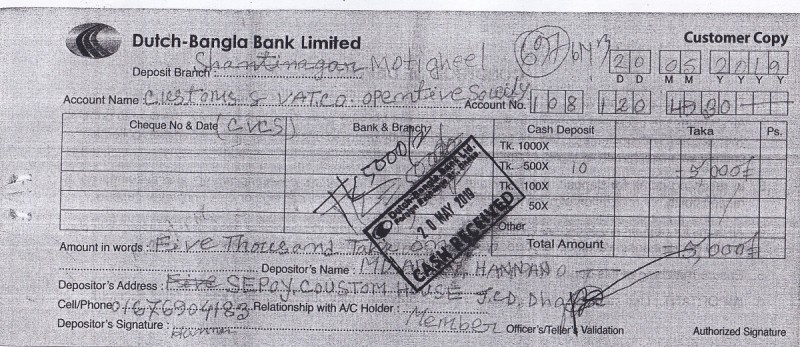 Dutch-Bangla Bank Limited
Customer Copy
Deposit Branch : Shantinagar Motigheel
20 05 2019
D D M M Y Y Y Y
Account Name : Customs & VAT.CO. operative Society
Account No. 108 120
Cheque No & Date (CVCS) Bank & Branch Cash Deposit Taka Ps.
Tk. 1000X
Tk. 500X 10 5,000/
Tk. 100X
50X
Other
Tk 5000/
Dutch-Bangla Bank Ltd.
20 MAY 2019
CASH RECEIVED
Amount in words : Five Thousand Taka Total Amount 5,000/
Depositor's Name : MD. HANNAN
Depositor's Address : Five SEPOY, COUSTOM HOUSE I.C.D, Dhaka
Cell/Phone 01676904183 Relationship with A/C Holder : Member
Depositor's Signature : Hannan Officer's/Teller's Validation Authorized Signature